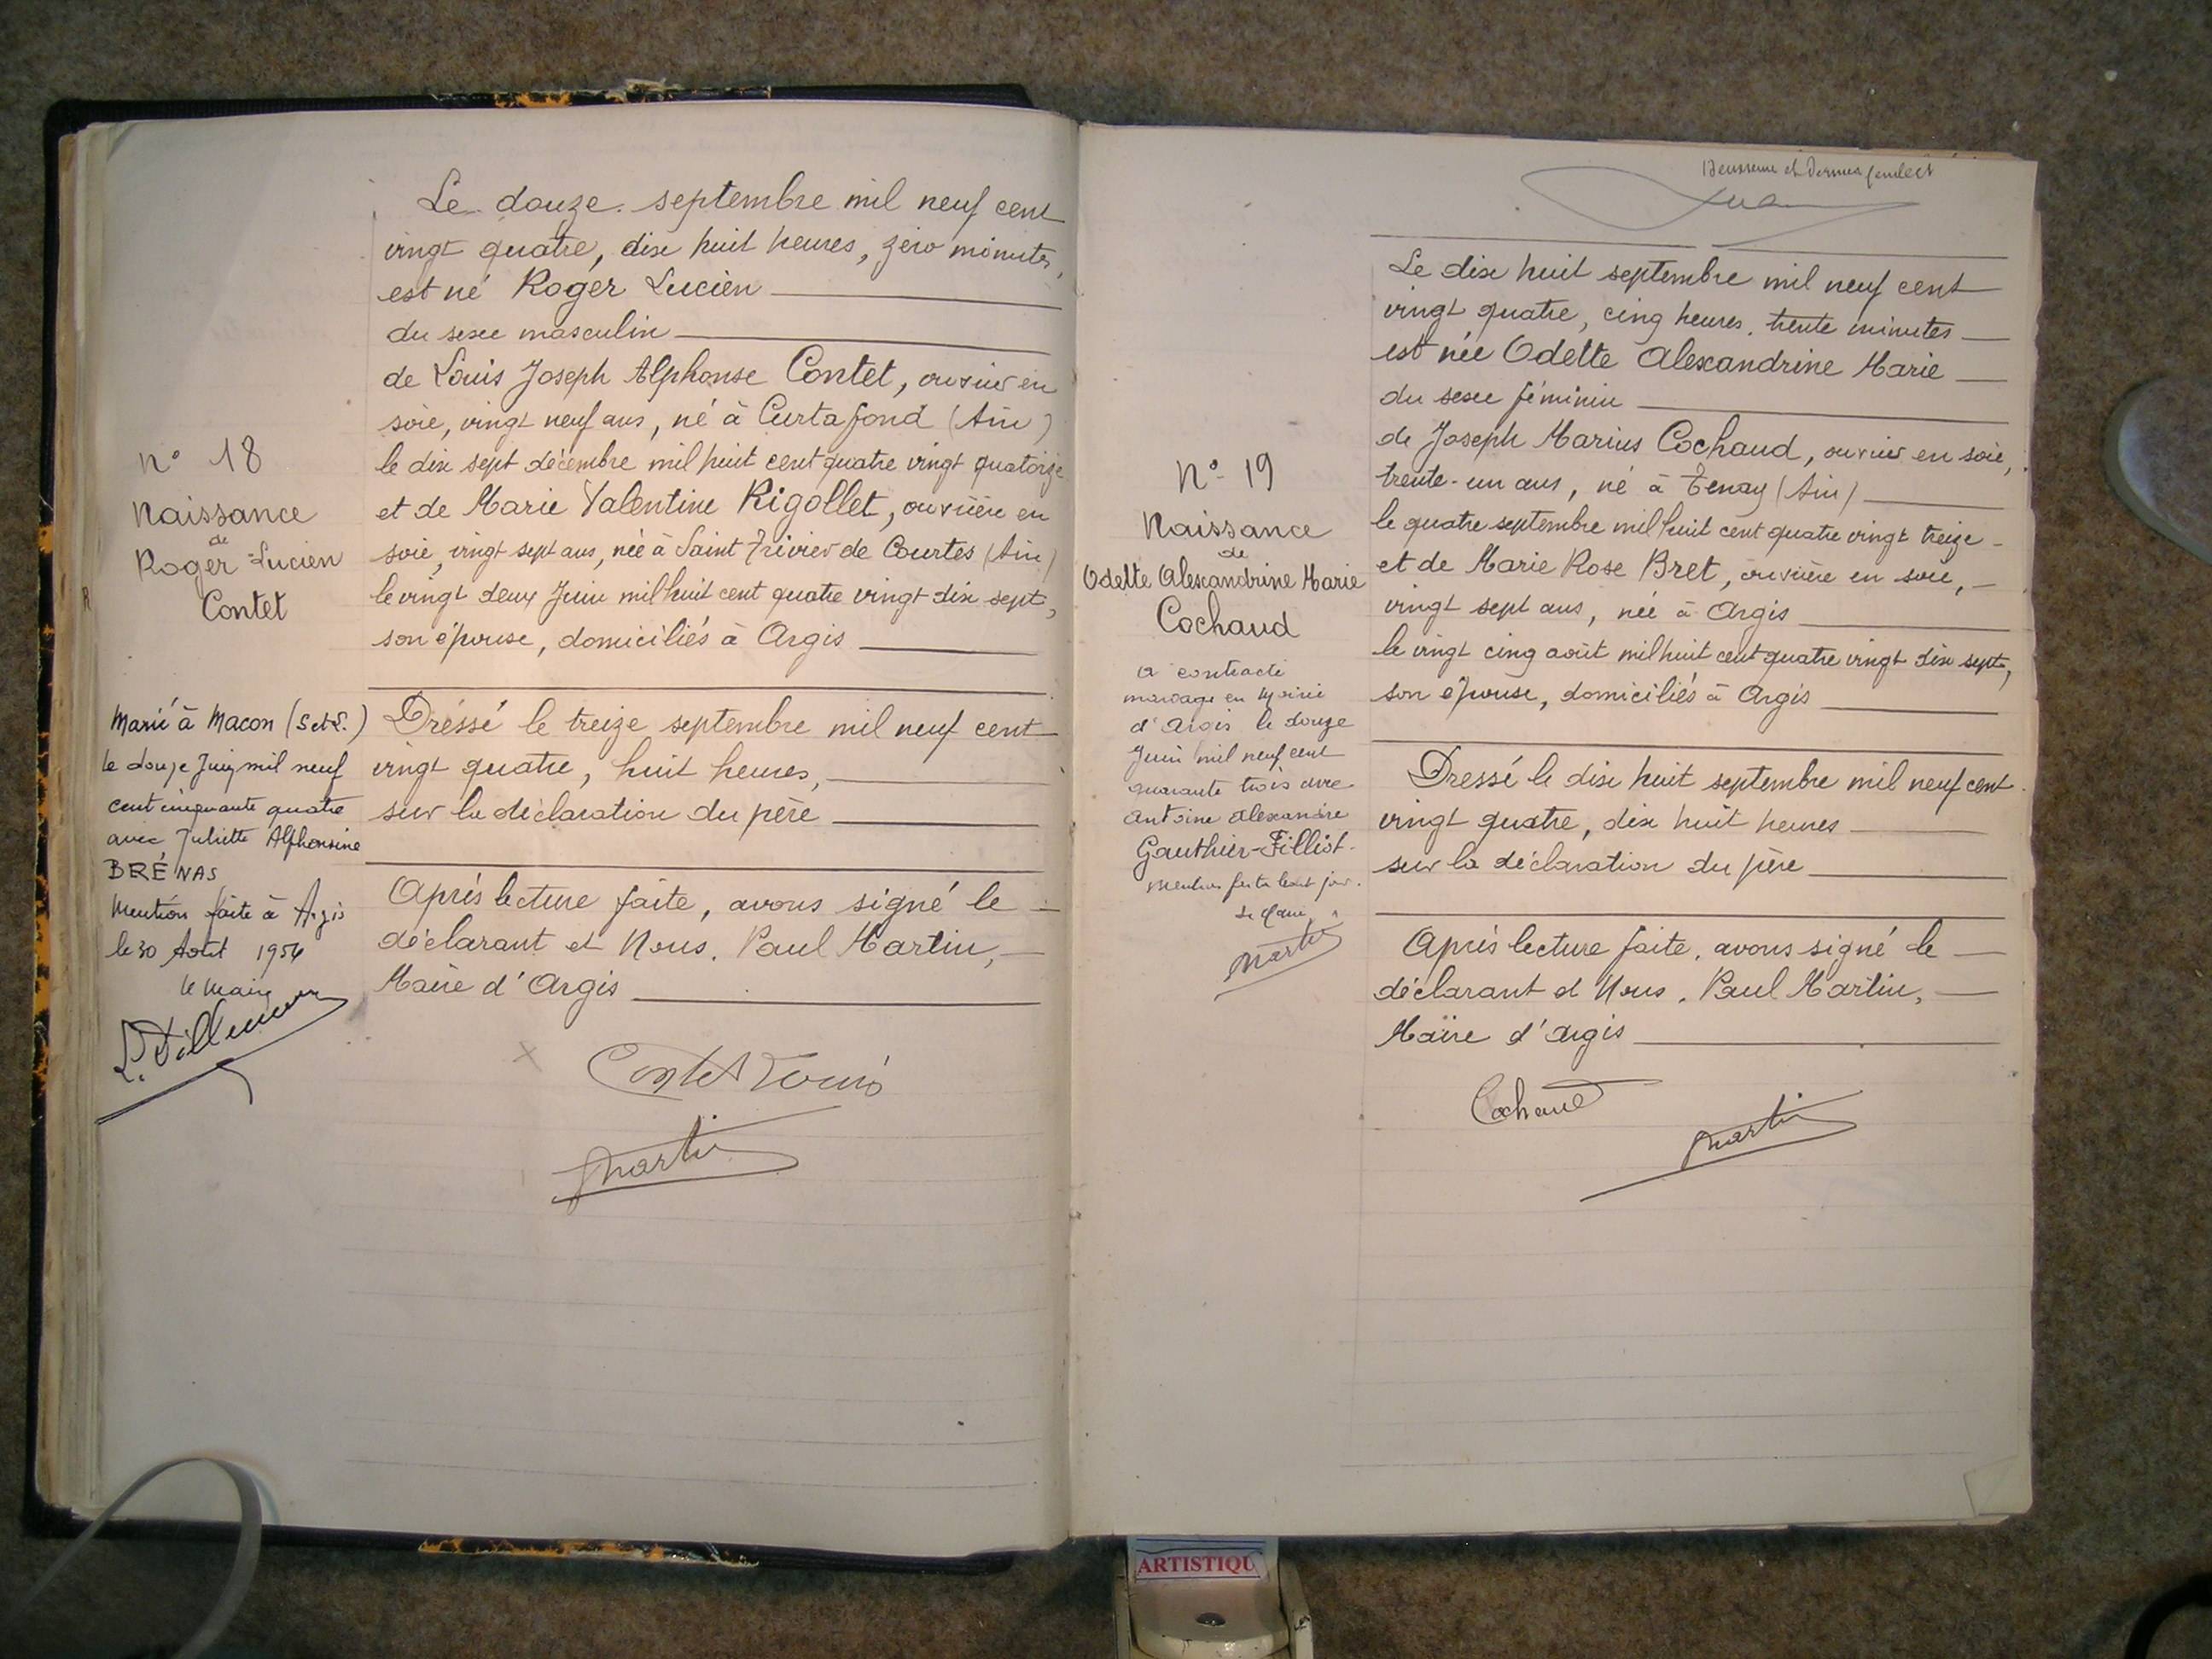 N° 18
Naissance
de
Roger-Lucien
Contet
Marié à Macon (S et L.)
le douze Juin mil neuf
cent cinquante quatre
avec Juliette Alphonsine
BRÉNAS
Mention faite à Argis
le 30 Août 1954
le maire
Le douze septembre mil neuf cent
vingt quatre, dix huit heures, zéro minutes,
est né Roger Lucien
du sexe masculin
de Louis Joseph Alphonse Contet, ouvrier en
soie, vingt neuf ans, né à Curtafond (Ain)
le dix sept décembre mil huit cent quatre vingt quatorze
et de Marie Valentine Rigollet, ouvrière en
soie, vingt sept ans, née à Saint Trivier de Courtes (Ain)
le vingt deux Juin mil huit cent quatre vingt dix sept,
son épouse, domiciliés à Argis
Dréssé le treize septembre mil neuf cent
vingt quatre, huit heures,
sur la déclaration du père
Après lecture faite, avons signé le
déclarant et Nous. Paul Martin,
Maire d'Argis
Contet Louis
Martin
N° 19
Naissance
de
Odette Alexandrine Marie
Cochaud
a contracté
mariage en Mairie
d'Argis le douze
Juin mil neuf cent
quarante trois avec
Antoine Alexandre
Gauthier-Filliot.
Martin
feuillet
Le dix huit septembre mil neuf cent
vingt quatre, cinq heures, trente minutes
est née Odette Alexandrine Marie
du sexe féminin
de Joseph Marius Cochaud, ouvrier en soie,
trente-un ans, né à Tenay (Ain)
le quatre septembre mil huit cent quatre vingt treize
et de Marie Rose Bret, ouvrière en soie,
vingt sept ans, née à Argis
le vingt cinq août mil huit cent quatre vingt dix sept,
son épouse, domiciliés à Argis
Dressé le dix huit septembre mil neuf cent
vingt quatre, dix huit heures
sur la déclaration du père
Après lecture faite, avons signé le
déclarant et Nous. Paul Martin,
Maire d'Argis
Cochaud
Martin
ARTISTIQU